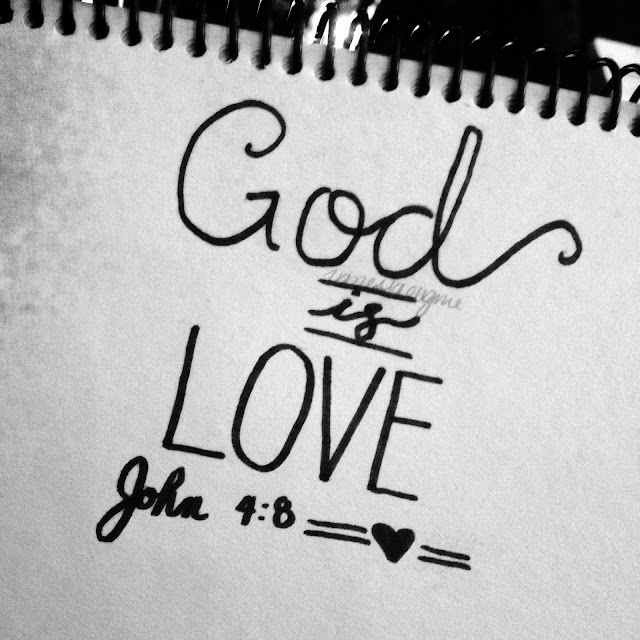 God
is
LOVE
John 4:8